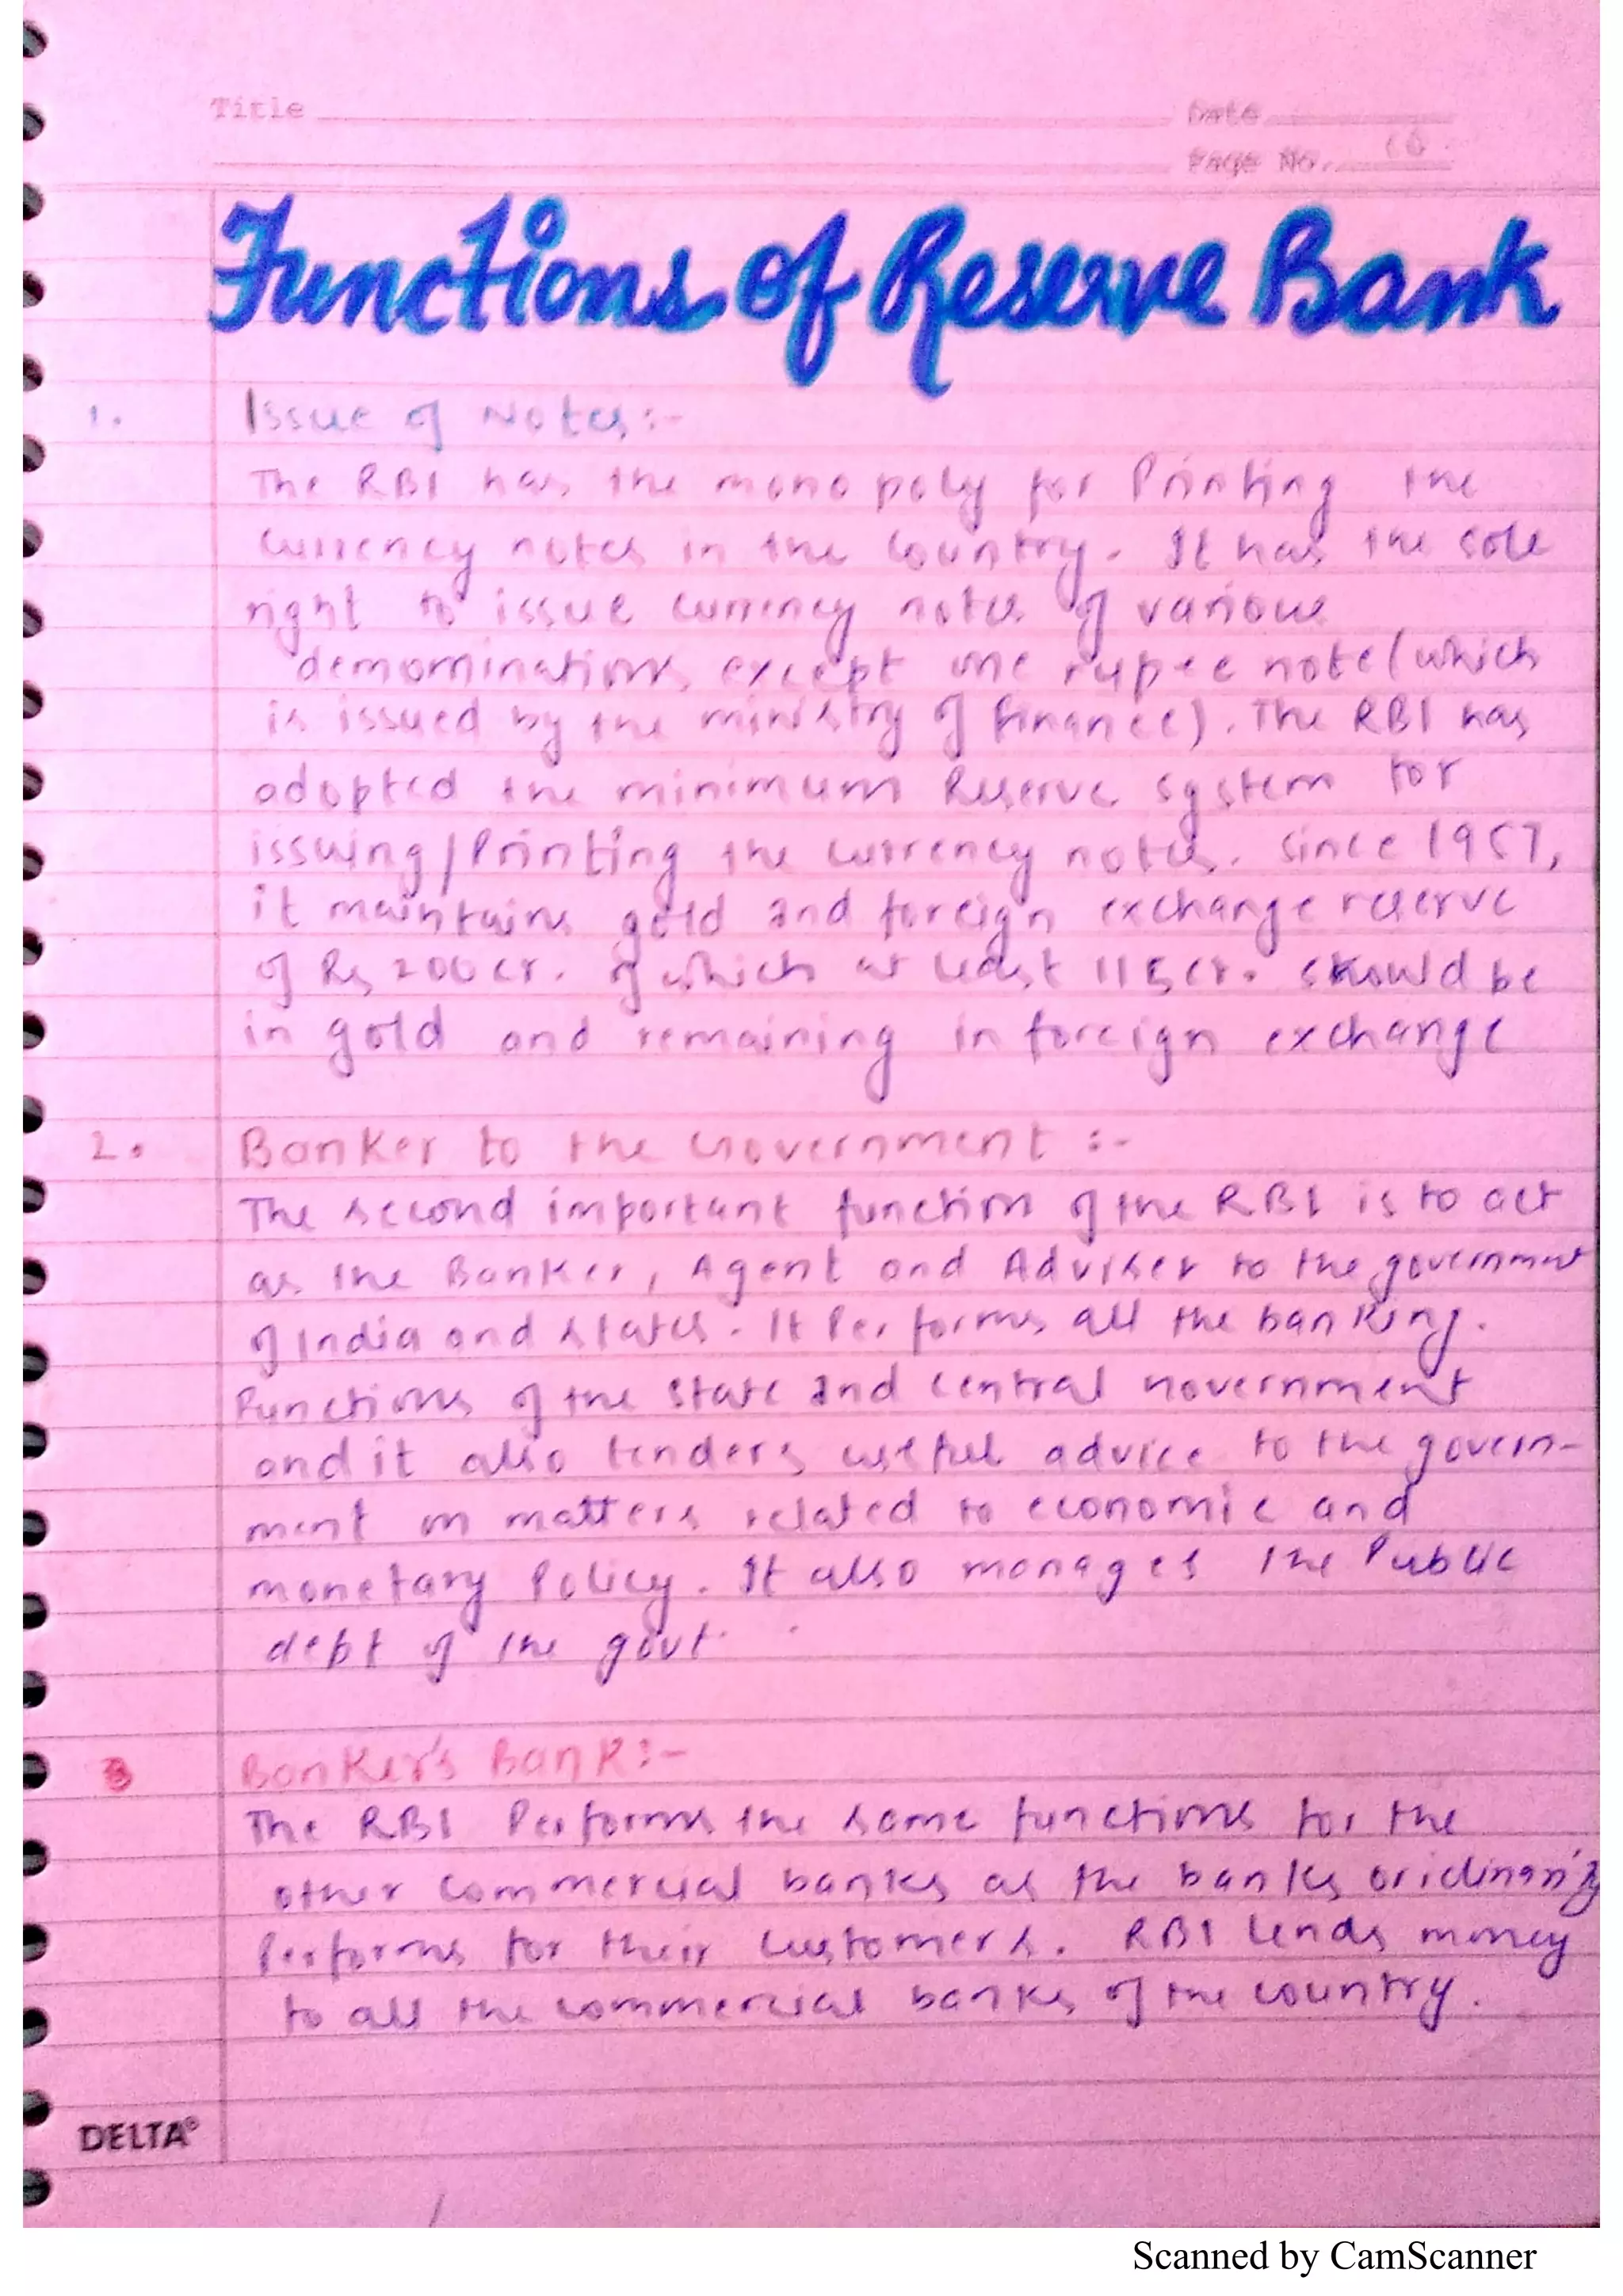 Title
Date
Page No. 10
Functions of Reserve Bank
1. Issue of Notes:-
The RBI has the monopoly for Printing the
currency notes in the country. It has the sole
right to issue currency notes of various
demominations except one rupee note (which
is issued by the ministry of finance). The RBI has
adopted the minimum Reserve system for
issuing/Printing the currency notes. Since 1957,
it maintains gold and foreign exchange reserve
of Rs 200 cr. of which at least 115 cr. should be
in gold and remaining in foreign exchange
2. Banker to the Government :-
The second important function of the RBI is to act
as the Banker, Agent and Adviser to the government
of India and states. It Performs all the banking.
Functions of the state and central government
and it also tenders useful advice to the govern-
ment on matters related to economic and
monetary Policy. It also manages the Public
dept of the govt.
3 Banker's Bank:-
The RBI Performs the same functions for the
other commercial banks as the banks oridinarily
Performs for their customers. RBI lends money
to all the commercial banks of the country.
DELTA®
Scanned by CamScanner